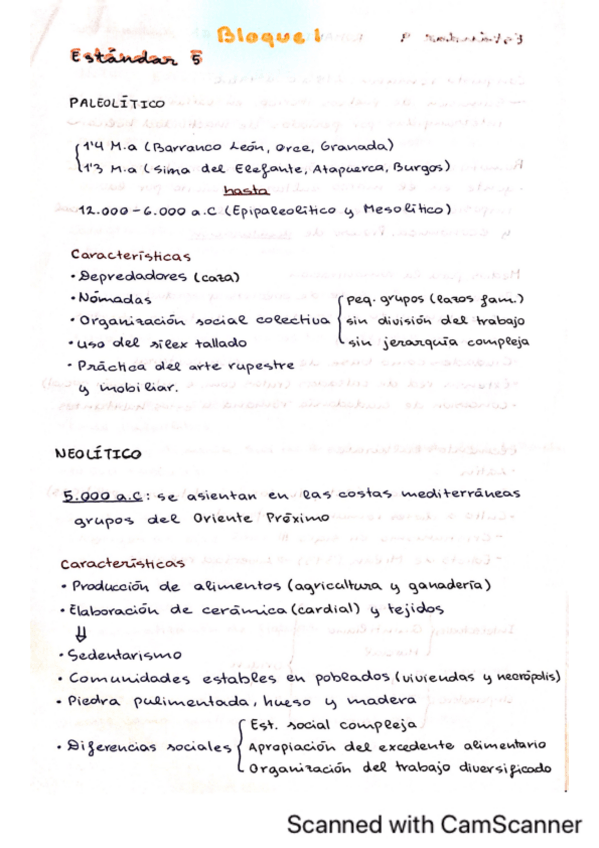 Bloque 1
Estándar 5
PALEOLÍTICO
1'4 M.a (Barranco León, Orce, Granada)
1'3 M.a (Sima del Elefante, Atapuerca, Burgos)
hasta
12.000-6.000 a.C (Epipaleolítico y Mesolítico)
Características
• Depredadores (caza)
• Nómadas
• Organización social colectiva
peq. grupos (lazos fam.)
sin división del trabajo
sin jerarquía compleja
• Uso del silex tallado
• Práctica del arte rupestre
y mobiliar.
NEOLÍTICO
5.000 a.C: se asientan en las costas mediterráneas
grupos del Oriente Próximo
Características
• Producción de alimentos (agricultura y ganadería)
• Elaboración de cerámica (cardial) y tejidos
⇓
• Sedentarismo
• Comunidades estables en poblados (viviendas y necrópolis)
• Piedra pulimentada, hueso y madera
• Diferencias sociales
Est. social compleja
Apropiación del excedente alimentario
Organización del trabajo diversificado
Scanned with CamScanner